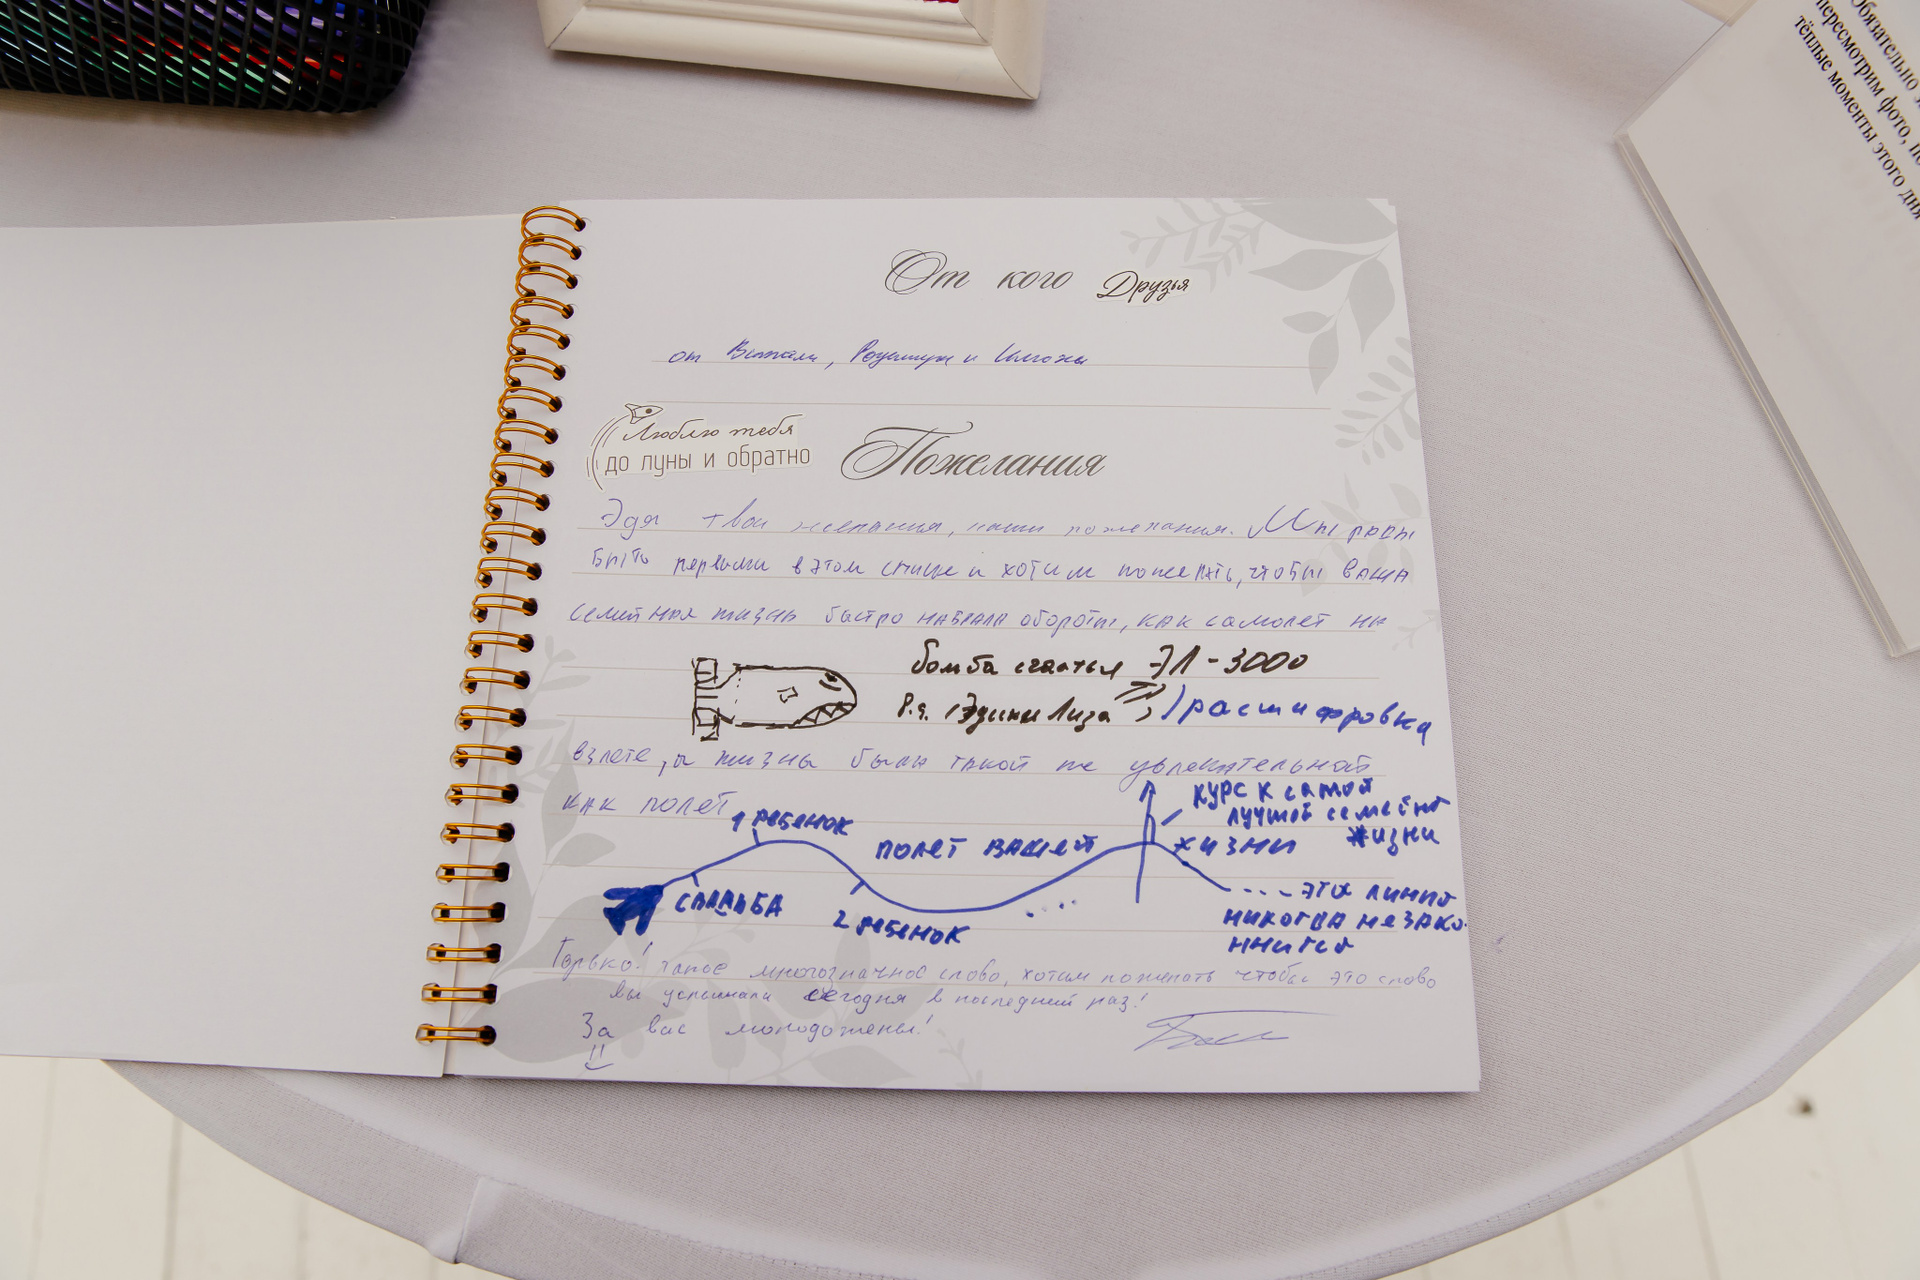 Обязательно
пересмотрим фото,
тёплые моменты этого дня
От кого Друзья
от Витали, и
Люблю тебя
до луны и обратно
Пожелания
Эдя твои желания, наши пожелания. Мы рады
быть первыми в этом списке и хотим пожелать, чтобы ваша
семейная жизнь быстро набрала обороты, как самолет на
бомба счастья ЭЛ-3000
P.S. (Эдик и Лиза) расшифровка
взлете, а жизнь была такой же увлекательной
как полет
курс к самой
лучшей семейной
жизни
1 ребенок
полет вашей жизни
свадьба
2 ребенок
.... эта линия
никогда не зако-
ннится
Горько! такое многозначное слово, хотим пожелать чтобы это слово
вы услышали сегодня в последний раз!
За вас молодожены!